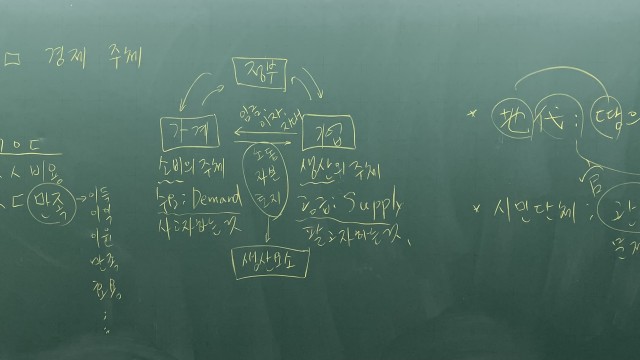 □ 경제 주체
정부
임금, 이자, 지대
가계
기업
노동
자본
토지
소비의 주체
수요: Demand
사고자하는 것
생산의 주체
공급: Supply
팔고자하는 것
생산요소
비용
만족 → 이득
이익
이윤
만족
효용
* 地代: 땅의
* 시민단체;